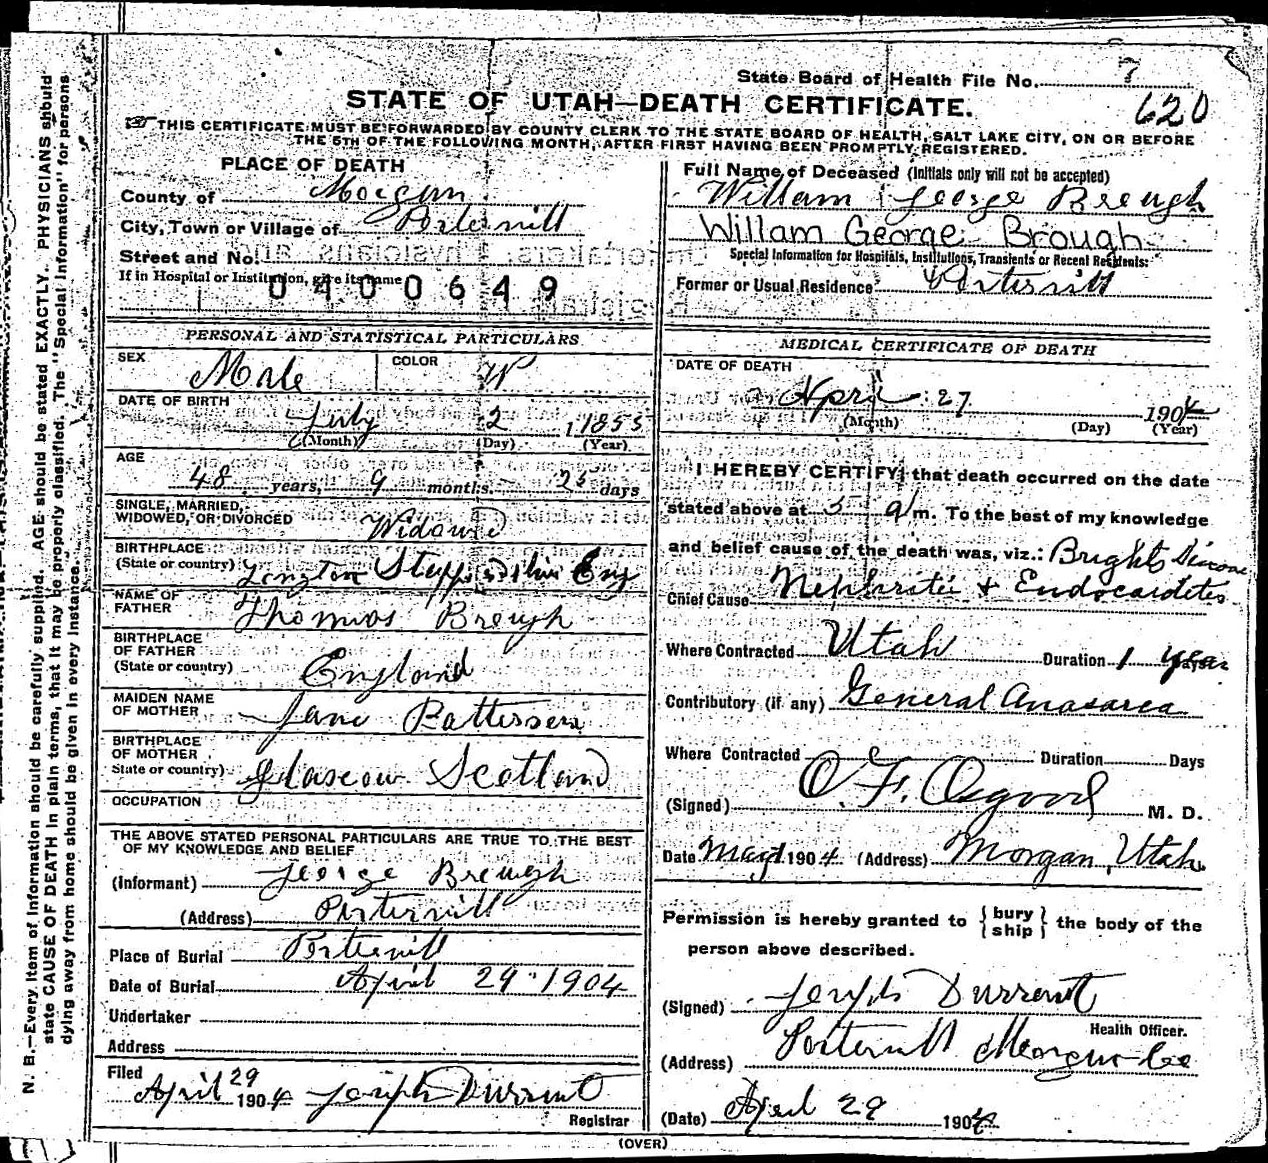 State Board of Health File No. 7
STATE OF UTAH—DEATH CERTIFICATE.
620
THIS CERTIFICATE MUST BE FORWARDED BY COUNTY CLERK TO THE STATE BOARD OF HEALTH, SALT LAKE CITY, ON OR BEFORE
THE 5TH OF THE FOLLOWING MONTH, AFTER FIRST HAVING BEEN PROMPTLY REGISTERED.
PLACE OF DEATH
County of Morgan
City, Town or Village of Porterville
Street and No.
If in Hospital or Institution, give its name
0400649
PERSONAL AND STATISTICAL PARTICULARS
SEX Male COLOR W
DATE OF BIRTH
July 2 1855
(Month) (Day) (Year)
AGE
48 years, 9 months, 25 days
SINGLE, MARRIED,
WIDOWED, OR DIVORCED Widowed
BIRTHPLACE
(State or country) Longton Eng
NAME OF
FATHER Thomas Brough
BIRTHPLACE
OF FATHER
(State or country) England
MAIDEN NAME
OF MOTHER Jane Patterson
BIRTHPLACE
OF MOTHER
State or country) Glascow Scotland
OCCUPATION
THE ABOVE STATED PERSONAL PARTICULARS ARE TRUE TO THE BEST
OF MY KNOWLEDGE AND BELIEF
(Informant) George Brough
(Address) Porterville
Place of Burial Porterville
Date of Burial April 29 1904
Undertaker
Address
Filed
April 29 1904 Joseph Durrant
Registrar
Full Name of Deceased (Initials only will not be accepted)
William George Brough
Willam George Brough
Special Information for Hospitals, Institutions, Transients or Recent Residents:
Former or Usual Residence Porterville
MEDICAL CERTIFICATE OF DEATH
DATE OF DEATH
April 27 1904
(Month) (Day) (Year)
I HEREBY CERTIFY, that death occurred on the date
stated above at 5 a m. To the best of my knowledge
and belief cause of the death was, viz.: Brights Disease
Chief Cause Nephritis & Endocarditis
Where Contracted Utah Duration 1 year
Contributory (if any) General Anasarca
Where Contracted Duration Days
(Signed) O. F. Osgood M. D.
Date May 1 1904 (Address) Morgan, Utah
Permission is hereby granted to {bury ship} the body of the
person above described.
(Signed) Joseph Durrant
Health Officer.
(Address) Porterville Morgan Co
(Date) April 29 1904
(OVER)
N. B.—Every item of information should be carefully supplied. AGE should be stated EXACTLY. PHYSICIANS should
state CAUSE OF DEATH in plain terms, that it may be properly classified. The "Special Information" for persons
dying away from home should be given in every instance.